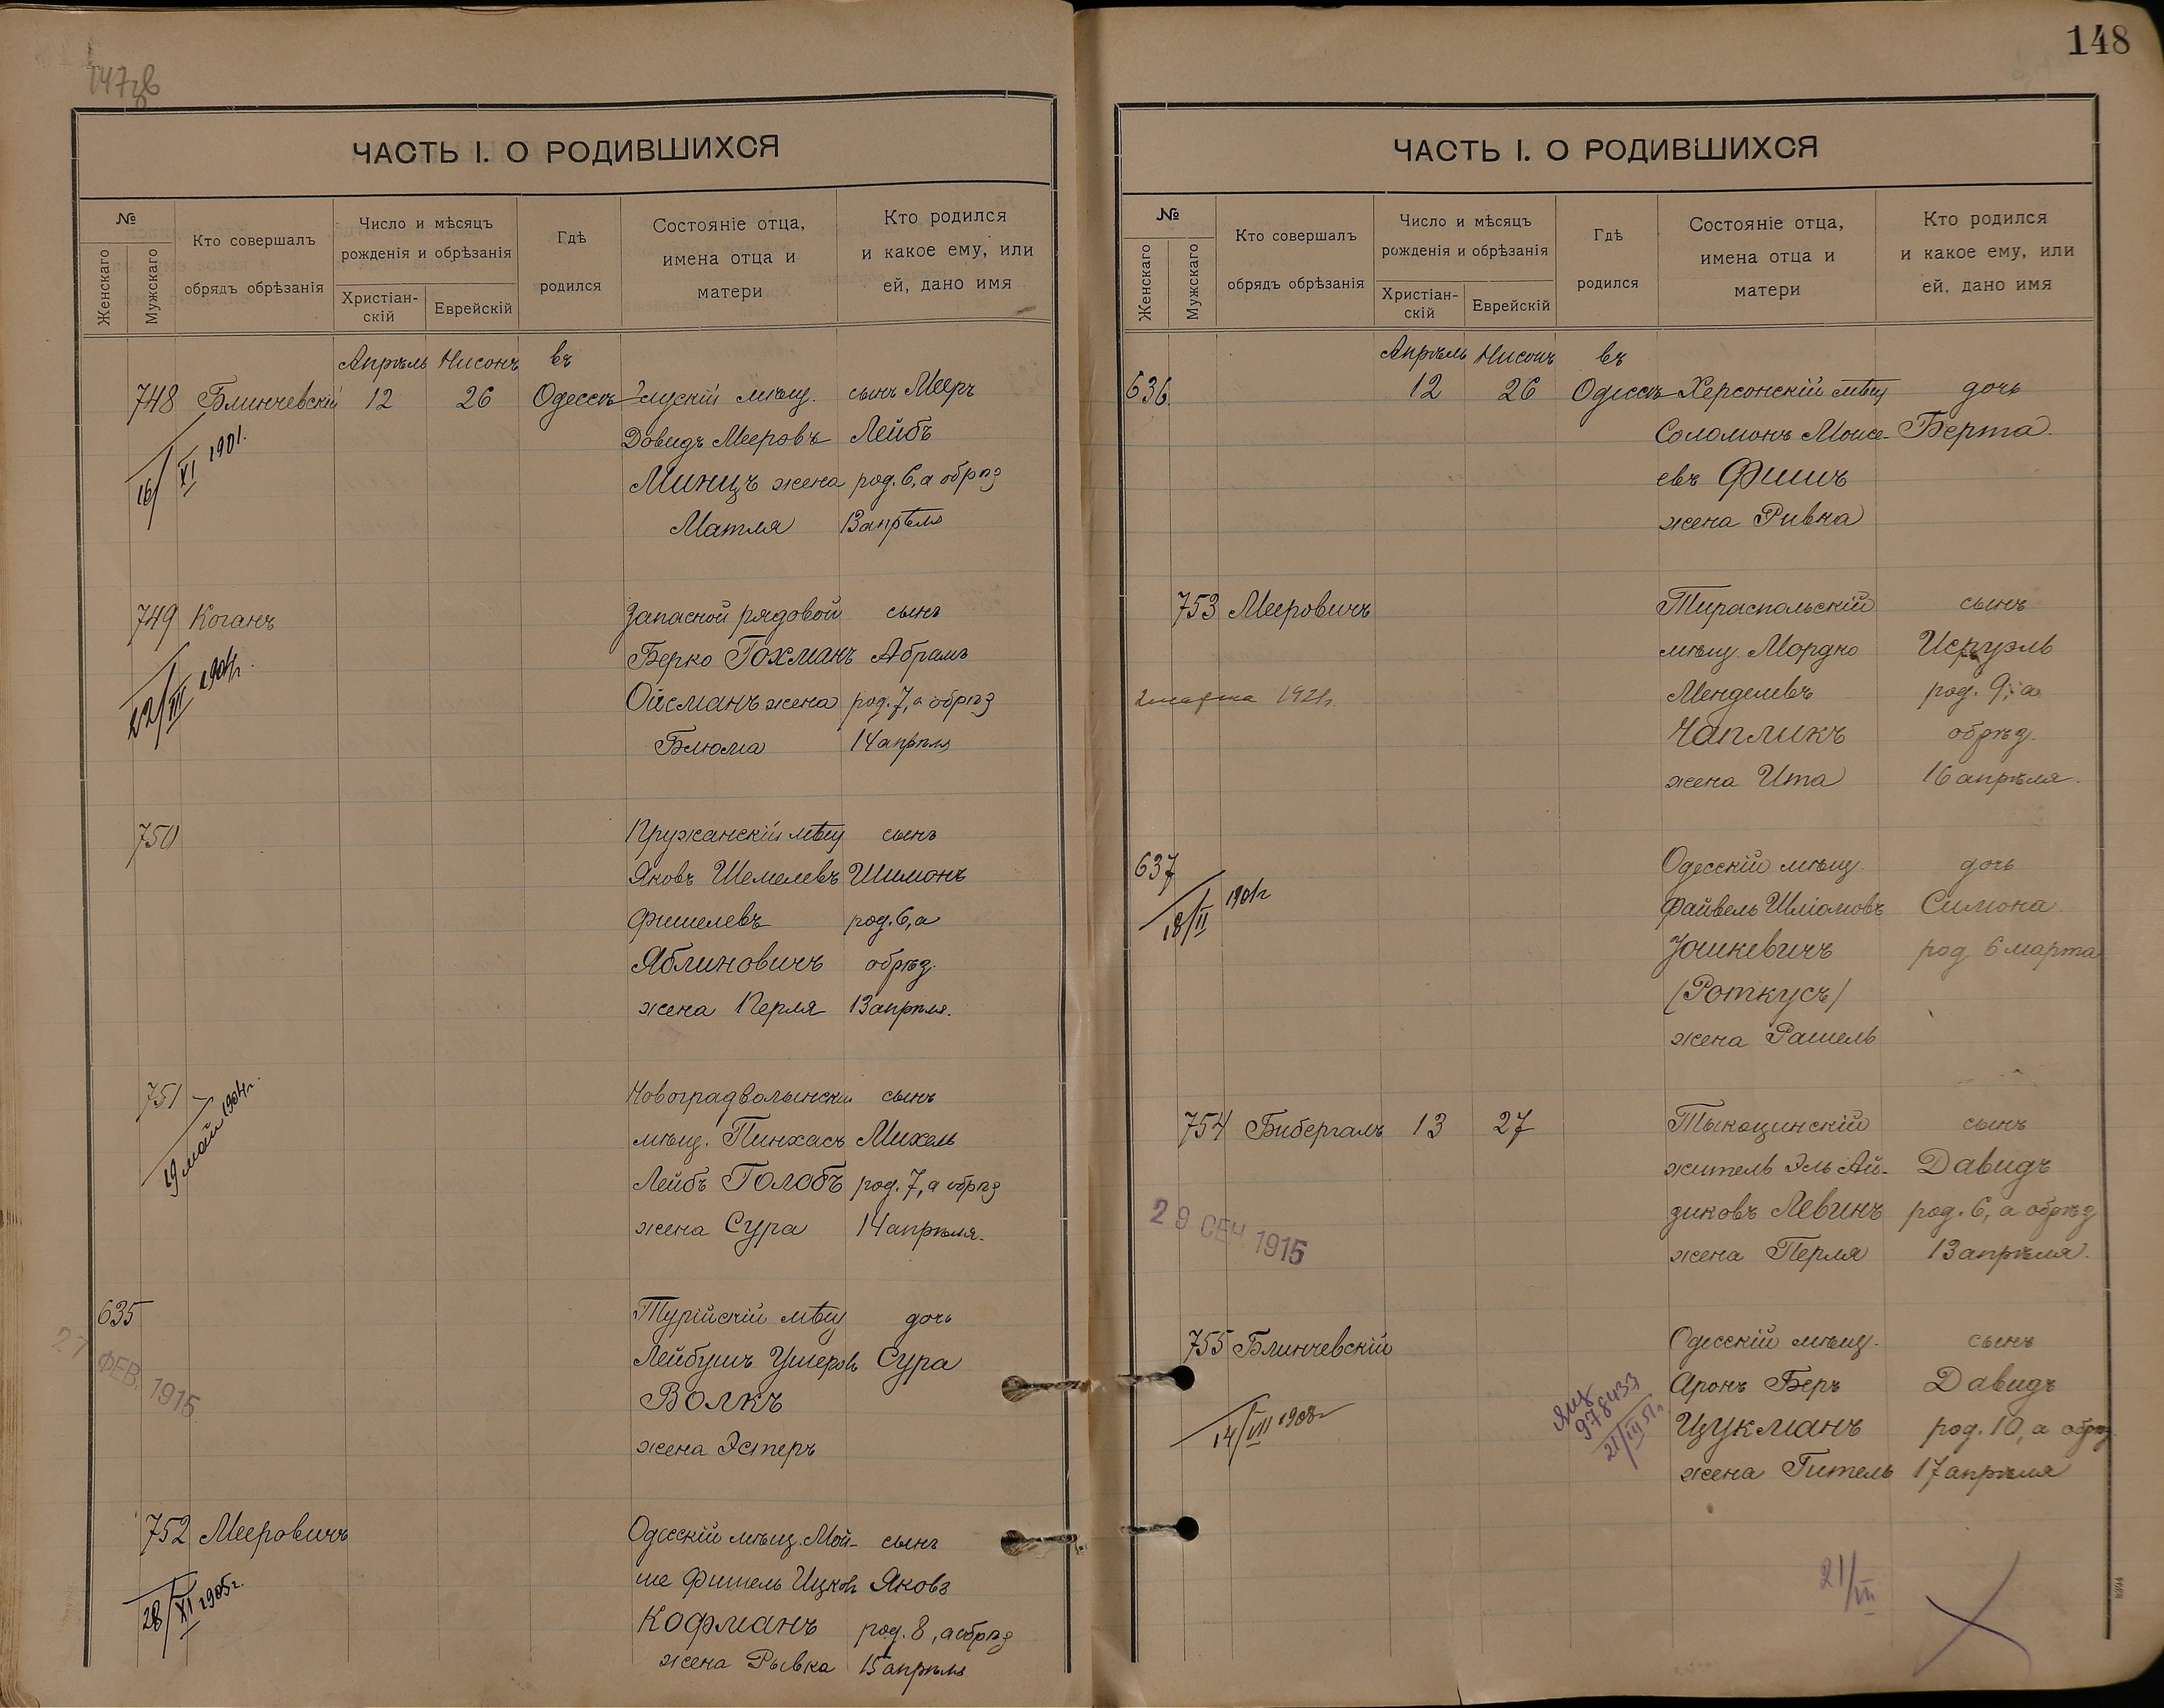 ЧАСТЬ I. О РОДИВШИХСЯ
№
Женскаго
Мужскаго
Кто совершалъ
обрядъ обрѣзанія
Число и мѣсяцъ
рожденія и обрѣзанія
Христіан-
скій
Еврейскій
Гдѣ
родился
Состояніе отца,
имена отца и
матери
Кто родился
и какое ему, или
ей, дано имя
Апрѣль Нисонъ въ
748 Блинчевскій 12 26 Одессѣ мѣщ. сынъ Мееръ
Довидъ Мееровъ Лейбъ
Минцъ жена род. 6, а обрѣз
Матля 13 апрѣля
16/XI 1901.
749 Коганъ Запасной рядовой сынъ
Берко Гохманъ Абрамъ
Ойсманъ жена род. 7, а обрѣз
Блюма 14 апрѣля
750 Пружанскій мѣщ сынъ
Яковъ Шемелевъ Шимонъ
Фишелевъ род. 6, а
Яблиновичъ обрѣз.
жена Перля 13 апрѣля.
751 Новоградволынскій сынъ
мѣщ. Пинхасъ Михель
Лейбъ Голобъ род. 7, а обрѣз
жена Сура 14 апрѣля.
19 май 1904г.
635 Турійскій мѣщ дочь
Лейбушъ Ушеровъ Сура
Волкъ
жена Эстеръ
27 ФЕВ. 1915
752 Мееровичъ Одесскій мѣщ. Мой- сынъ
ше Фишель Ицков Яковъ
Кофманъ род. 8, а обрѣз
жена Рывка 15 апрѣля
28/XI 1905г.
148
ЧАСТЬ I. О РОДИВШИХСЯ
№
Женскаго
Мужскаго
Кто совершалъ
обрядъ обрѣзанія
Число и мѣсяцъ
рожденія и обрѣзанія
Христіан-
скій
Еврейскій
Гдѣ
родился
Состояніе отца,
имена отца и
матери
Кто родился
и какое ему, или
ей, дано имя
Апрѣль Нисонъ въ
636. 12 26 Одессѣ Херсонскій мѣщ дочь
Соломонъ Моисе- Берта.
евъ Фишъ
жена Ривка
753 Мееровичъ Тираспольскій сынъ
мѣщ. Мордко Исруэль
2 марта 1921г. Менделевъ род. 9, а
Чапликъ обрѣз.
жена Ита 16 апрѣля.
637 Одесскій мѣщ. дочь
Файвель Шліомовъ Симона
Іошкевичъ род 6 марта
/Роткусъ/
жена Рашель
18/II 1901г
754 Бибергалъ 13 27 Тыкоцинскій сынъ
житель Эль Ай- Давидъ
зиковъ Левинъ род. 6, а обрѣз
жена Перля 13 апрѣля.
29 СЕН 1915
755 Блинчевскій Одесскій мѣщ. сынъ
Аронъ Беръ Давидъ
Цукманъ род. 10, а обрѣз
жена Гитель 17 апрѣля
14/VII 1908г
978433
21/III 51г.
21/III